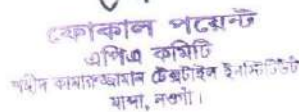 ফোকাল পয়েন্ট
এপিএ কমিটি
শহীদ কামারুজ্জামান টেক্সটাইল ইনস্টিটিউট
মান্দা, নওগাঁ।